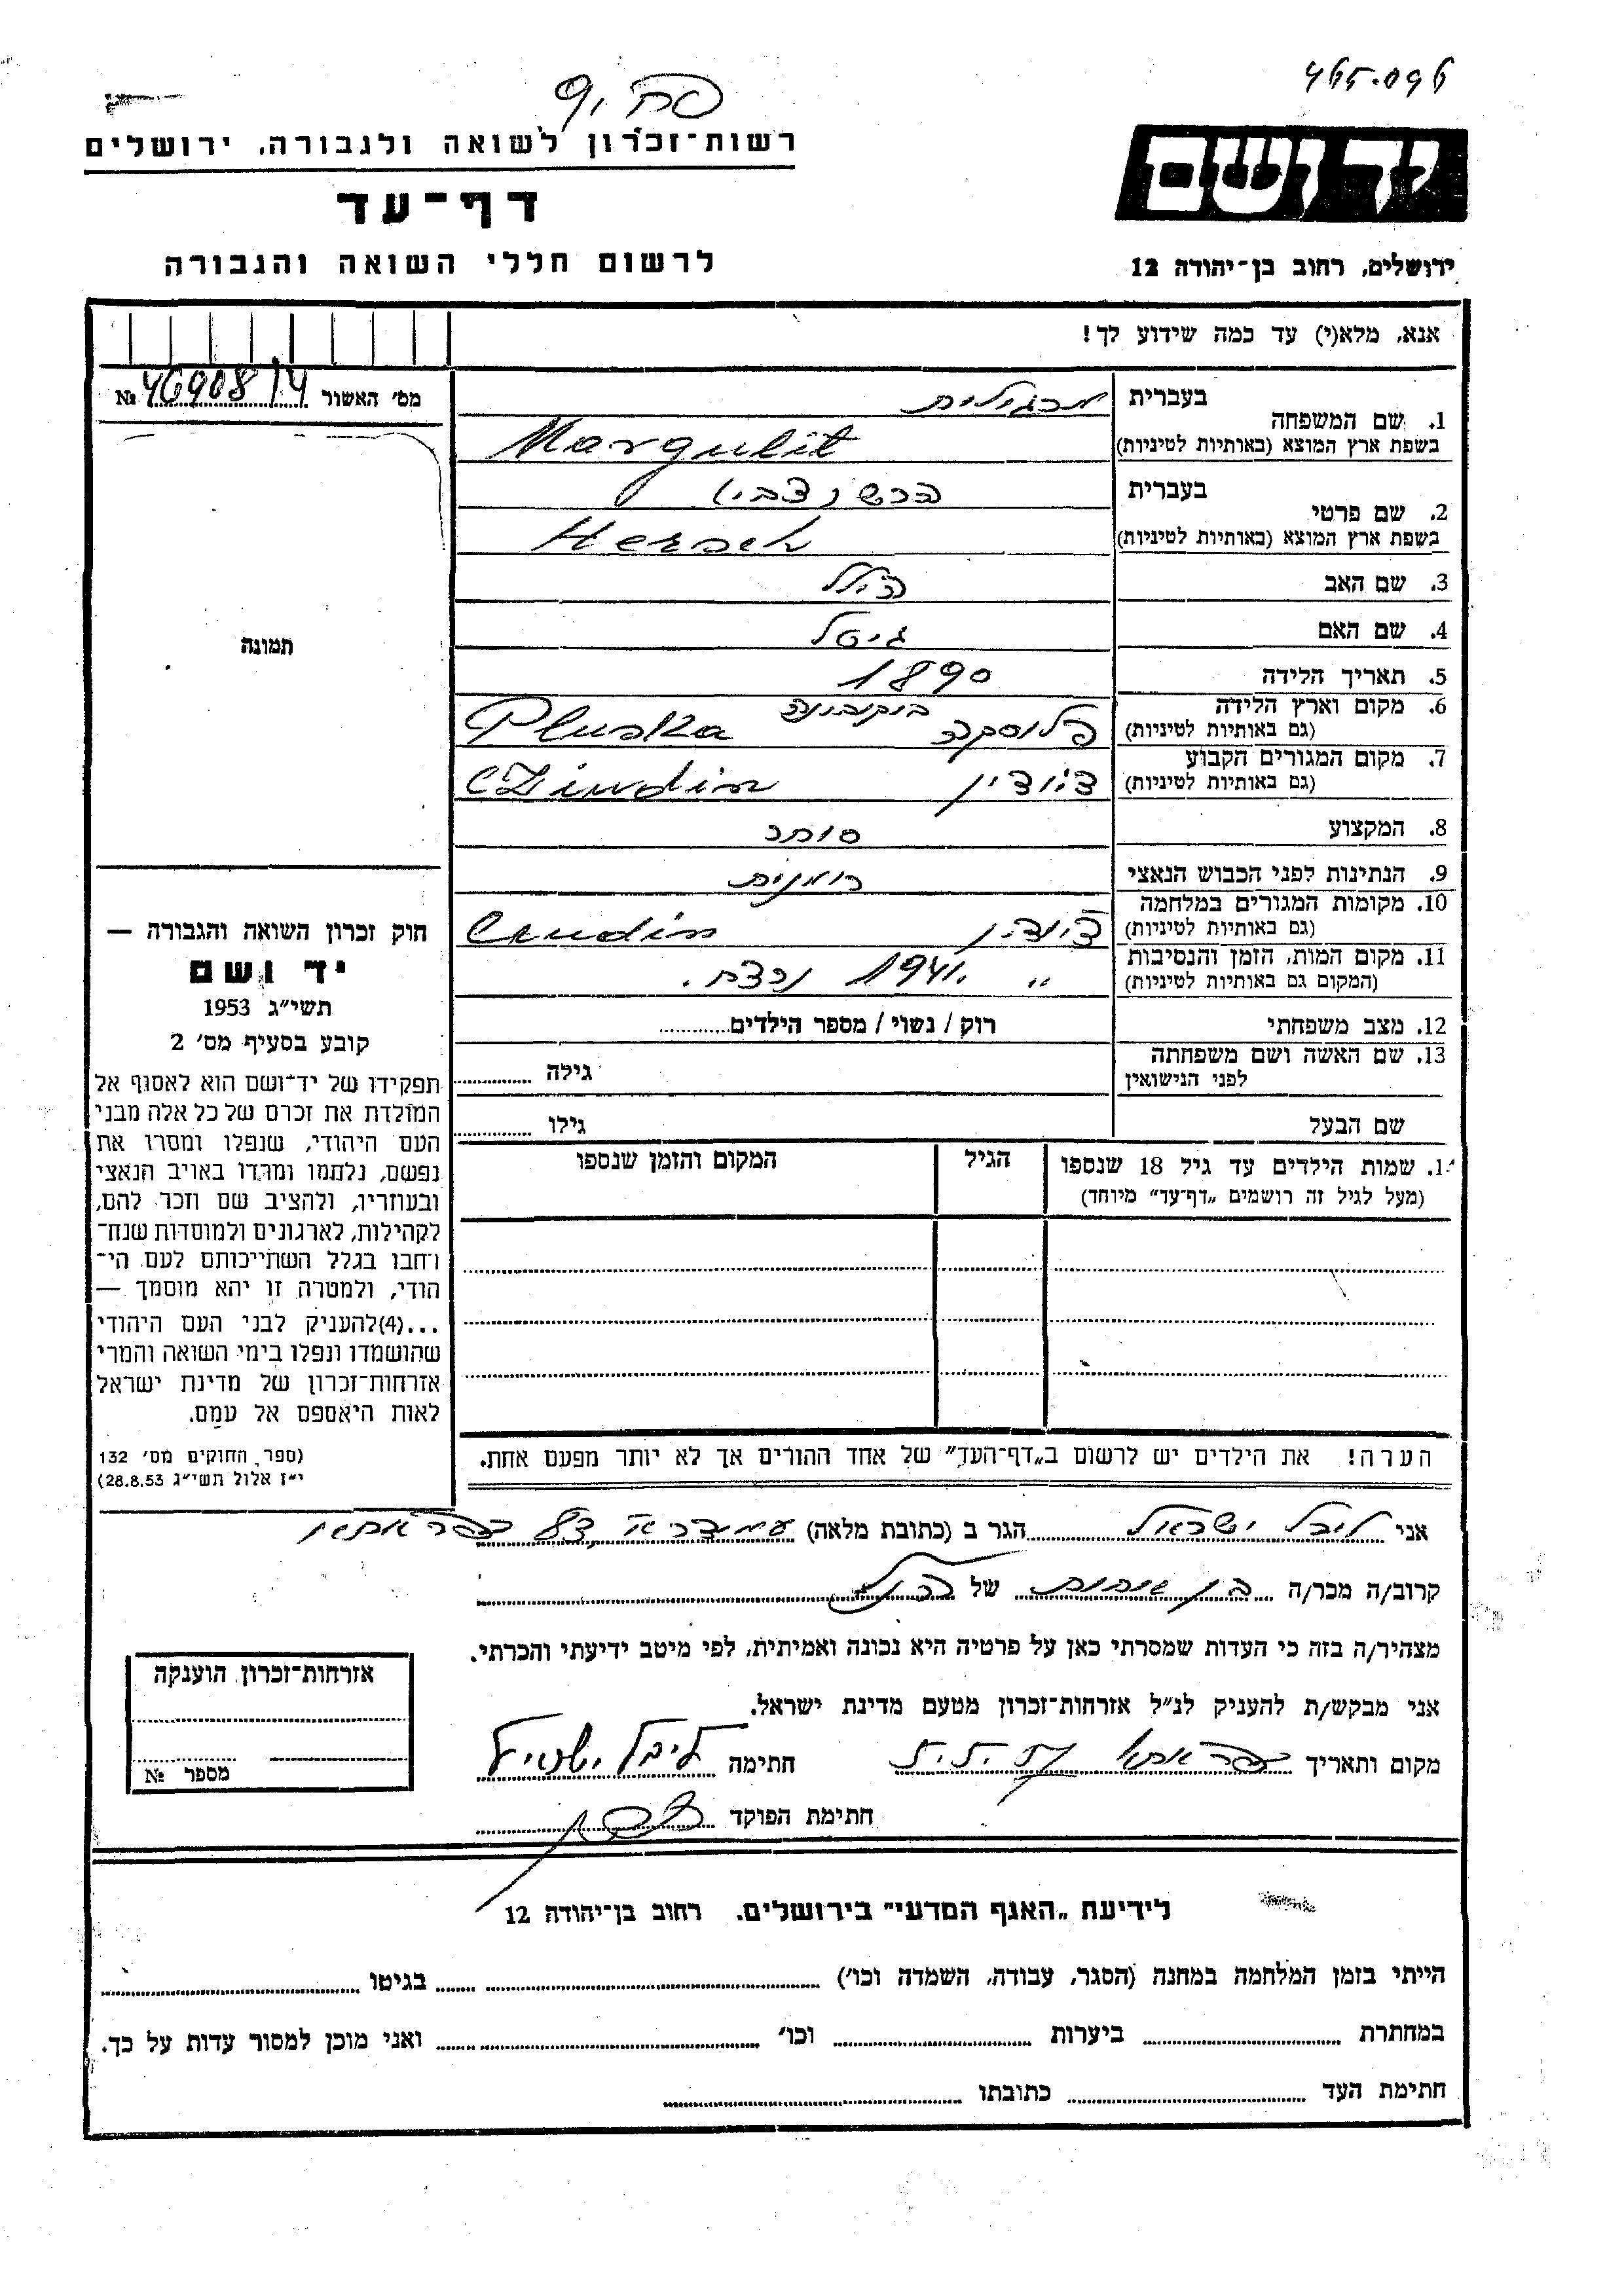 465096
רשות־זכרון לשואה ולגבורה, ירושלים
דף־עד
לרשום חללי השואה והגבורה
יד ושם
ירושלים, רחוב בן־יהודה 12
אנא, מלא(י) עד כמה שידוע לך!
מס׳ האשור 46908/14 №
1. שם המשפחה
בעברית מרגולית
בשפת ארץ המוצא (באותיות לטיניות) Margulit
2. שם פרטי
בעברית הרש (צבי)
בשפת ארץ המוצא (באותיות לטיניות) Hersch
3. שם האב הילל
4. שם האם גיטל
5. תאריך הלידה 1890
6. מקום וארץ הלידה בוקובינה
(גם באותיות לטיניות) פלוסקה Pluska
7. מקום המגורים הקבוע
(גם באותיות לטיניות)
8. המקצוע סוחר
9. הנתינות לפני הכבוש הנאצי רומנית
10. מקומות המגורים במלחמה
(גם באותיות לטיניות)
11. מקום המות, הזמן והנסיבות
(המקום גם באותיות לטיניות) ״ 1941 נרצח.
12. מצב משפחתי רוק / נשוי / מספר הילדים
13. שם האשה ושם משפחתה
לפני הנישואין גילה
שם הבעל גילו
תמונה
חוק זכרון השואה והגבורה —
יד ושם
תשי״ג 1953
קובע בסעיף מס׳ 2
תפקידו של יד־ושם הוא לאסוף אל
המולדת את זכרם של כל אלה מבני
העם היהודי, שנפלו ומסרו את
נפשם, נלחמו ומרדו באויב הנאצי
ובעוזריו, ולהציב שם וזכר להם,
לקהילות, לארגונים ולמוסדות שנח־
רחבו בגלל השתייכותם לעם הי־
הודי, ולמטרה זו יהא מוסמך —
...(4)להעניק לבני העם היהודי
שהושמדו ונפלו בימי השואה והמרי
אזרחות־זכרון של מדינת ישראל
לאות היאספם אל עמם.
(ספר החוקים מס׳ 132
י״ז אלול תשי״ג 28.8.53)
1. שמות הילדים עד גיל 18 שנספו הגיל המקום והזמן שנספו
(מעל לגיל זה רושמים „דף־עד״ מיוחד)
הערה! את הילדים יש לרשום ב„דף־העד״ של אחד ההורים אך לא יותר מפעם אחת.
אני ליבל ישראל הגר ב (כתובת מלאה) כפר אתא
קרוב/ה מכר/ה בן אחות של הנ״ל
מצהיר/ה בזה כי העדות שמסרתי כאן על פרטיה היא נכונה ואמיתית, לפי מיטב ידיעתי והכרתי.
אני מבקש/ת להעניק לנ״ל אזרחות־זכרון מטעם מדינת ישראל.
מקום ותאריך כפר אתא חתימה ליבל ישראל
חתימת הפוקד
אזרחות־זכרון הוענקה
מספר №
לידיעת „האגף המדעי״ בירושלים, רחוב בן־יהודה 12
הייתי בזמן המלחמה במחנה (הסגר, עבודה, השמדה וכו׳) בגיטו
במחתרת ביערות וכו׳ ואני מוכן למסור עדות על כך.
חתימת העד כתובתו